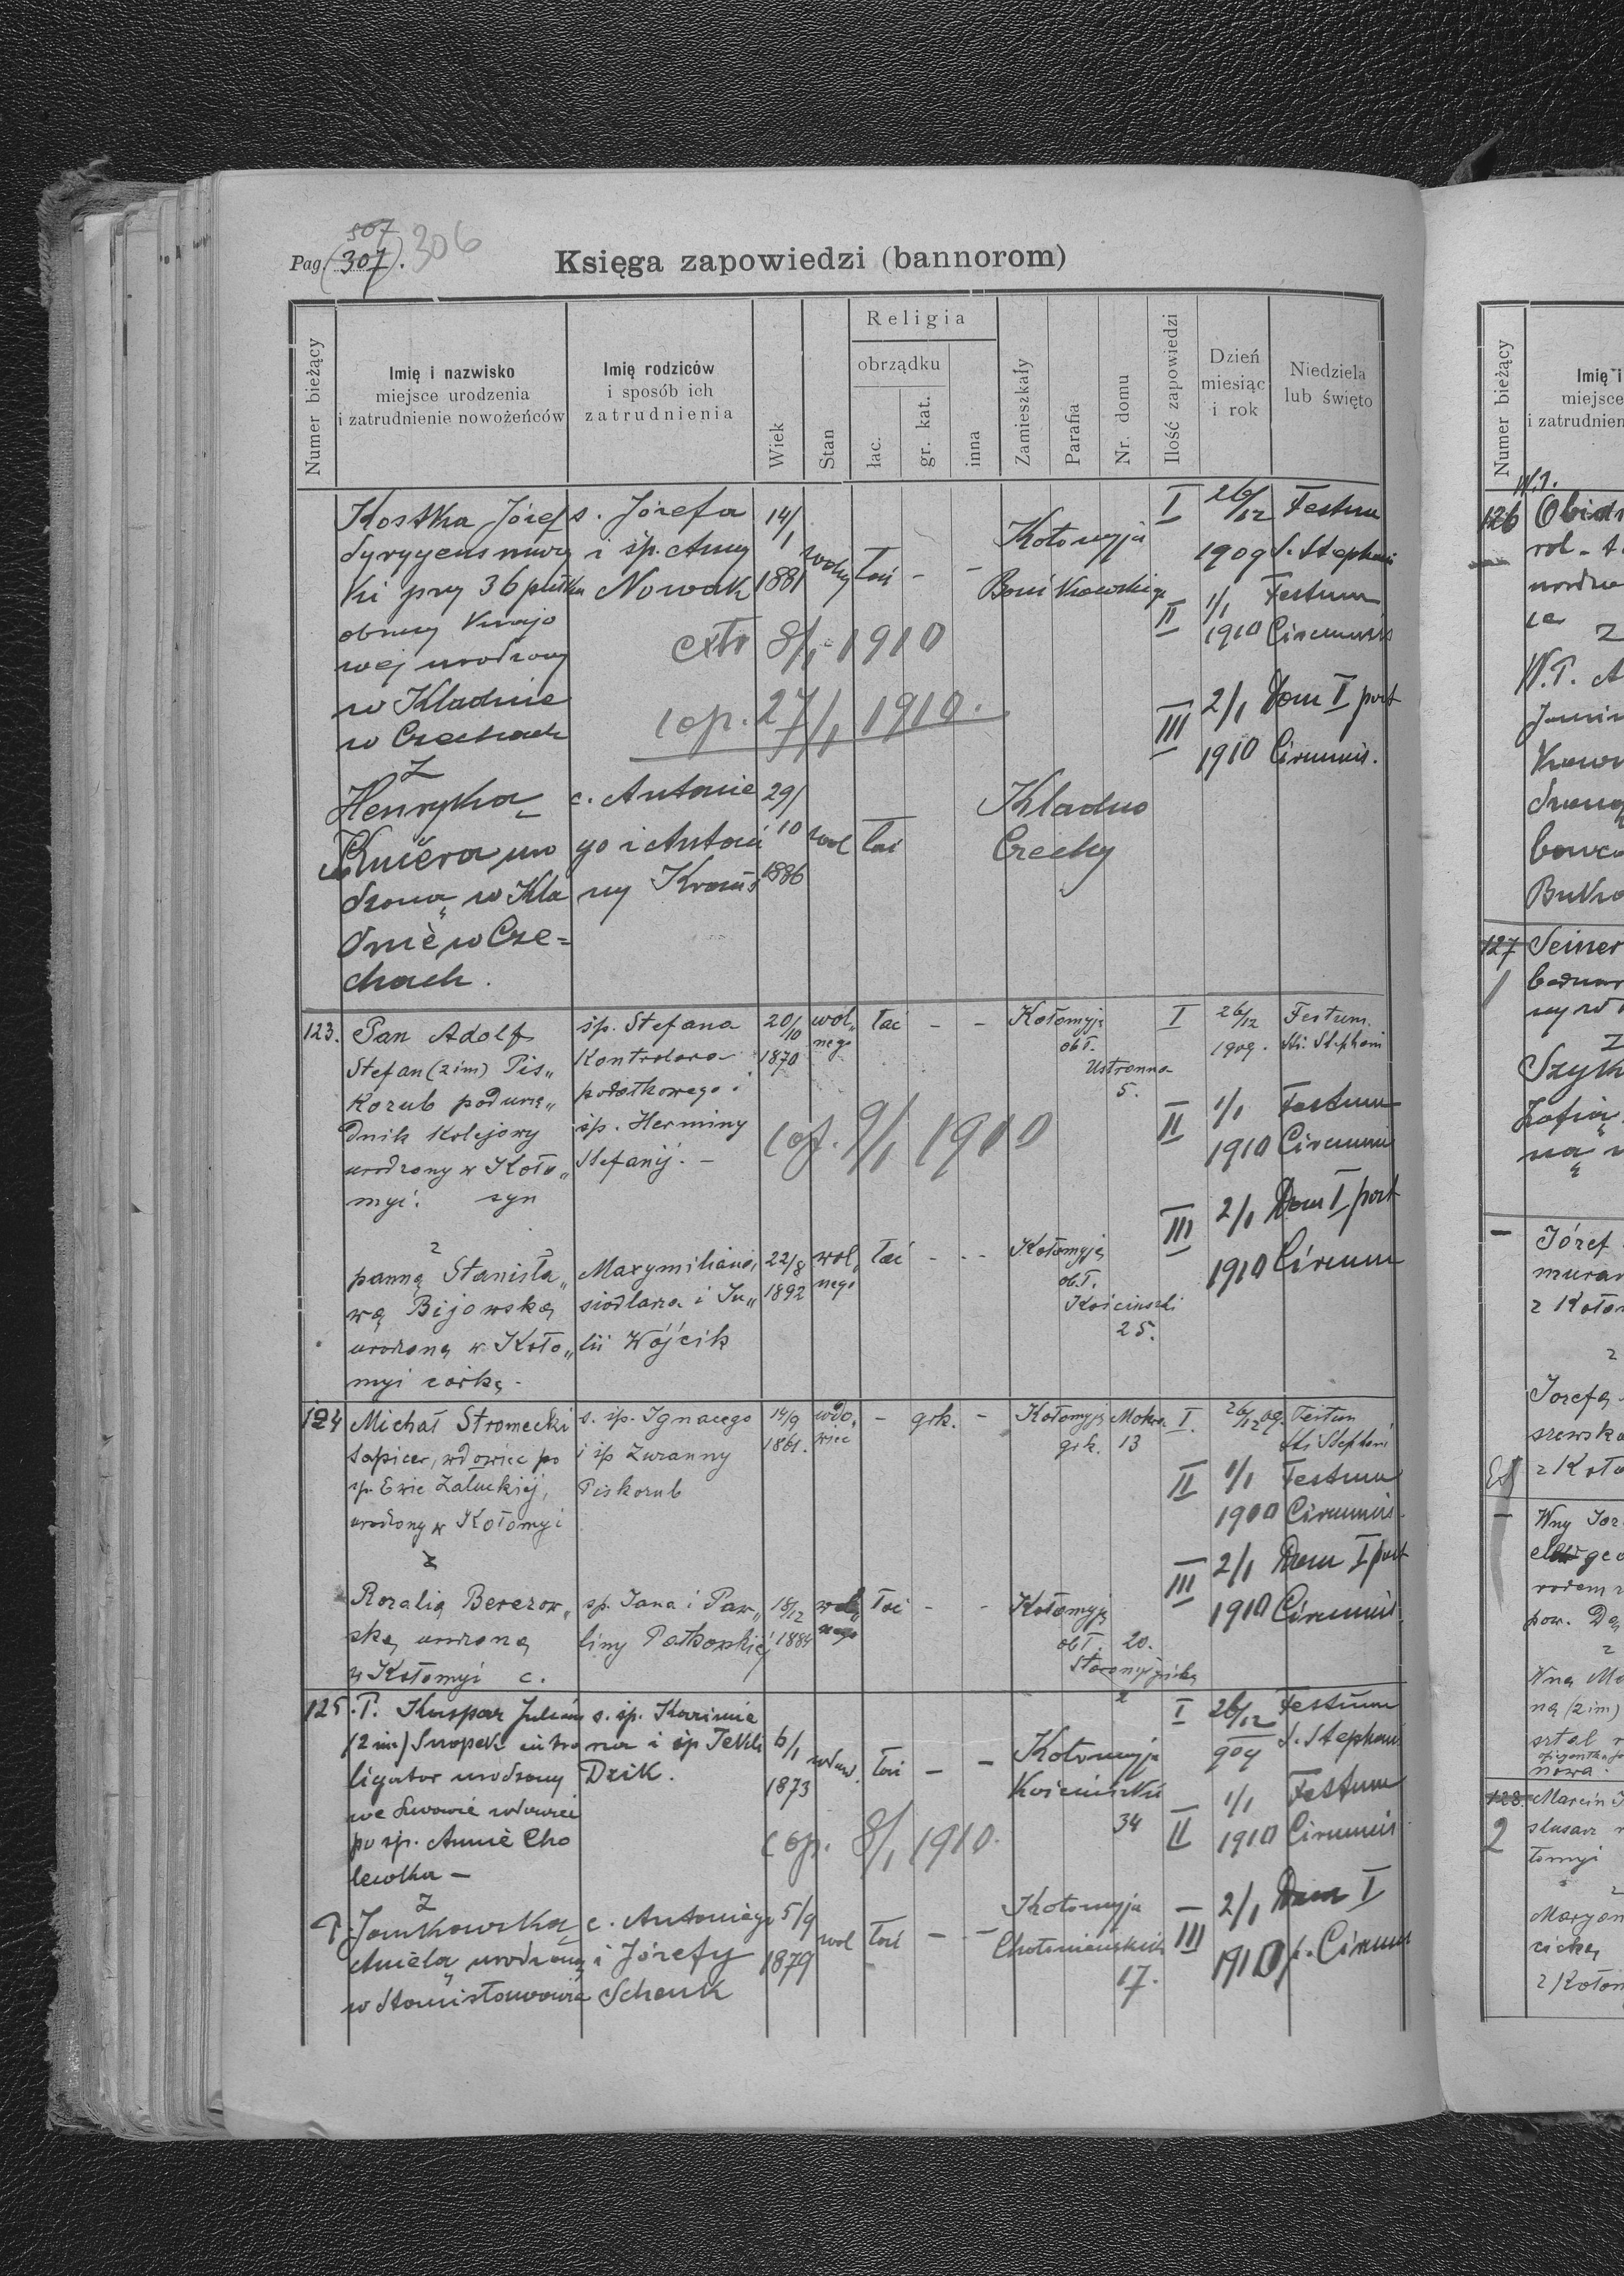 507
Pag. (307). 306
Księga zapowiedzi (bannorom)
Numer bieżący
Imię i nazwisko
miejsce urodzenia
i zatrudnienie nowożeńców
Imię rodziców
i sposób ich
zatrudnienia
Wiek
Stan
Religia
obrządku
łac.
gr. kat.
inna
Zamieszkały
Parafia
Nr. domu
Ilość zapowiedzi
Dzień
miesiąc
i rok
Niedziela
lub święto
Kostka Józef s. Józefa 14/1 I 26/12 Festum
i śp. Anny Kołomyja 1909 S. Stephani
Ki przy 36 pułku Nowak 1881 łać - -
II 1/1 Festum
obrony krajo extr 8/1 1910 1910 Circumcis
wej urodzony
w Kladnie cop. 27/1 1910. III 2/1 Dom I post
w Czechach 1910 Circumcis.
z
Henryka c. Antonie 29/ Kladno
Kučera uro go i Antoni 10 wol łać Czechy
dzona w Kla ny Kraus 1886
dnie w Cze=
chach.
123. Pan Adolf śp. Stefana 20/10 wol„ łać - - Kołomyja I 26/12 Festum.
Stefan (2 im) Pis„ Kontrolora 1870 nego ob ł. 1909. Sti. Stephani
Korub podurzę„ podatkowego i Ustronna 5.
dnik kolejowy śp. Herminy cop. 9/1 1910 II 1/1 Festum
urodzony w Koło„ Stefanij. - 1910 Circumcis
myi. syn III 2/1 Dom I post
z 1910 Circum
panną Stanisła„ Maxymiliana, 22/8 wol„ łać - - - Kołomyja
wą Bijowską siodlarza i Ju„ 1892 nego ob. ł.
urodzoną w Koło„ lii Wójcik Kościuszki
myi córką. 25.
124 Michał Stromecki s. śp. Ignacego 14/9 wdo„ - grk. - Kołomyja Mokra I. 26/12 09. Festum
tapicer, wdowiec po i śp Zuzanny 1861. wiec grk. 13 Sti Stephani
śp. Ewie Załuckiej, Piskozub II 1/1 Festum
urodzony w Kołomyi 1910 Circumcis.
z III 2/1 Dom I post
Rozalią Berezow„ śp. Jana i Paw„ 18/12 wol„ łać - - Kołomyja 1910 Circumcis
ską urodzoną liny Patkowskiej 1884 nego ob ł. 20.
w Kołomyi c.
125. P. Kaspar Julian s. śp. Kazimie I 26/12 Festum
(2 im) Snopek intro rza i śp Tekli 6/1 wdow. łać - - Kołomyja 909 S. Stephani
ligator urodzony Dzik. 1873 Kościuszki II 1/1 Festum
we Lwowie wdowiec 34 1910 Circumcis
po śp. Annie Cho cop. 8/1 1910.
lewka -
z
P. Jankowską c. Antoniego 5/9 wol łać - - Kołomyja III 2/1 Dom I
Anielą urodzoną i Józefy 1879 1910 p. Circum
w Stanisławowie Schenk 17.
Numer bieżący
Imię i
miejsce
i zatrudnien
126
rol.
z
127 Seiner
bednar
z
Józef
murar
z Koło
z
Józefą
szewsk
z Koło
Wny Józ
rodem z
pow.
z
Wną
ną (2 im)
nowa.
128. Marcin
2 slusarz
łomyi
z
Maryan
cicką
z Kołom